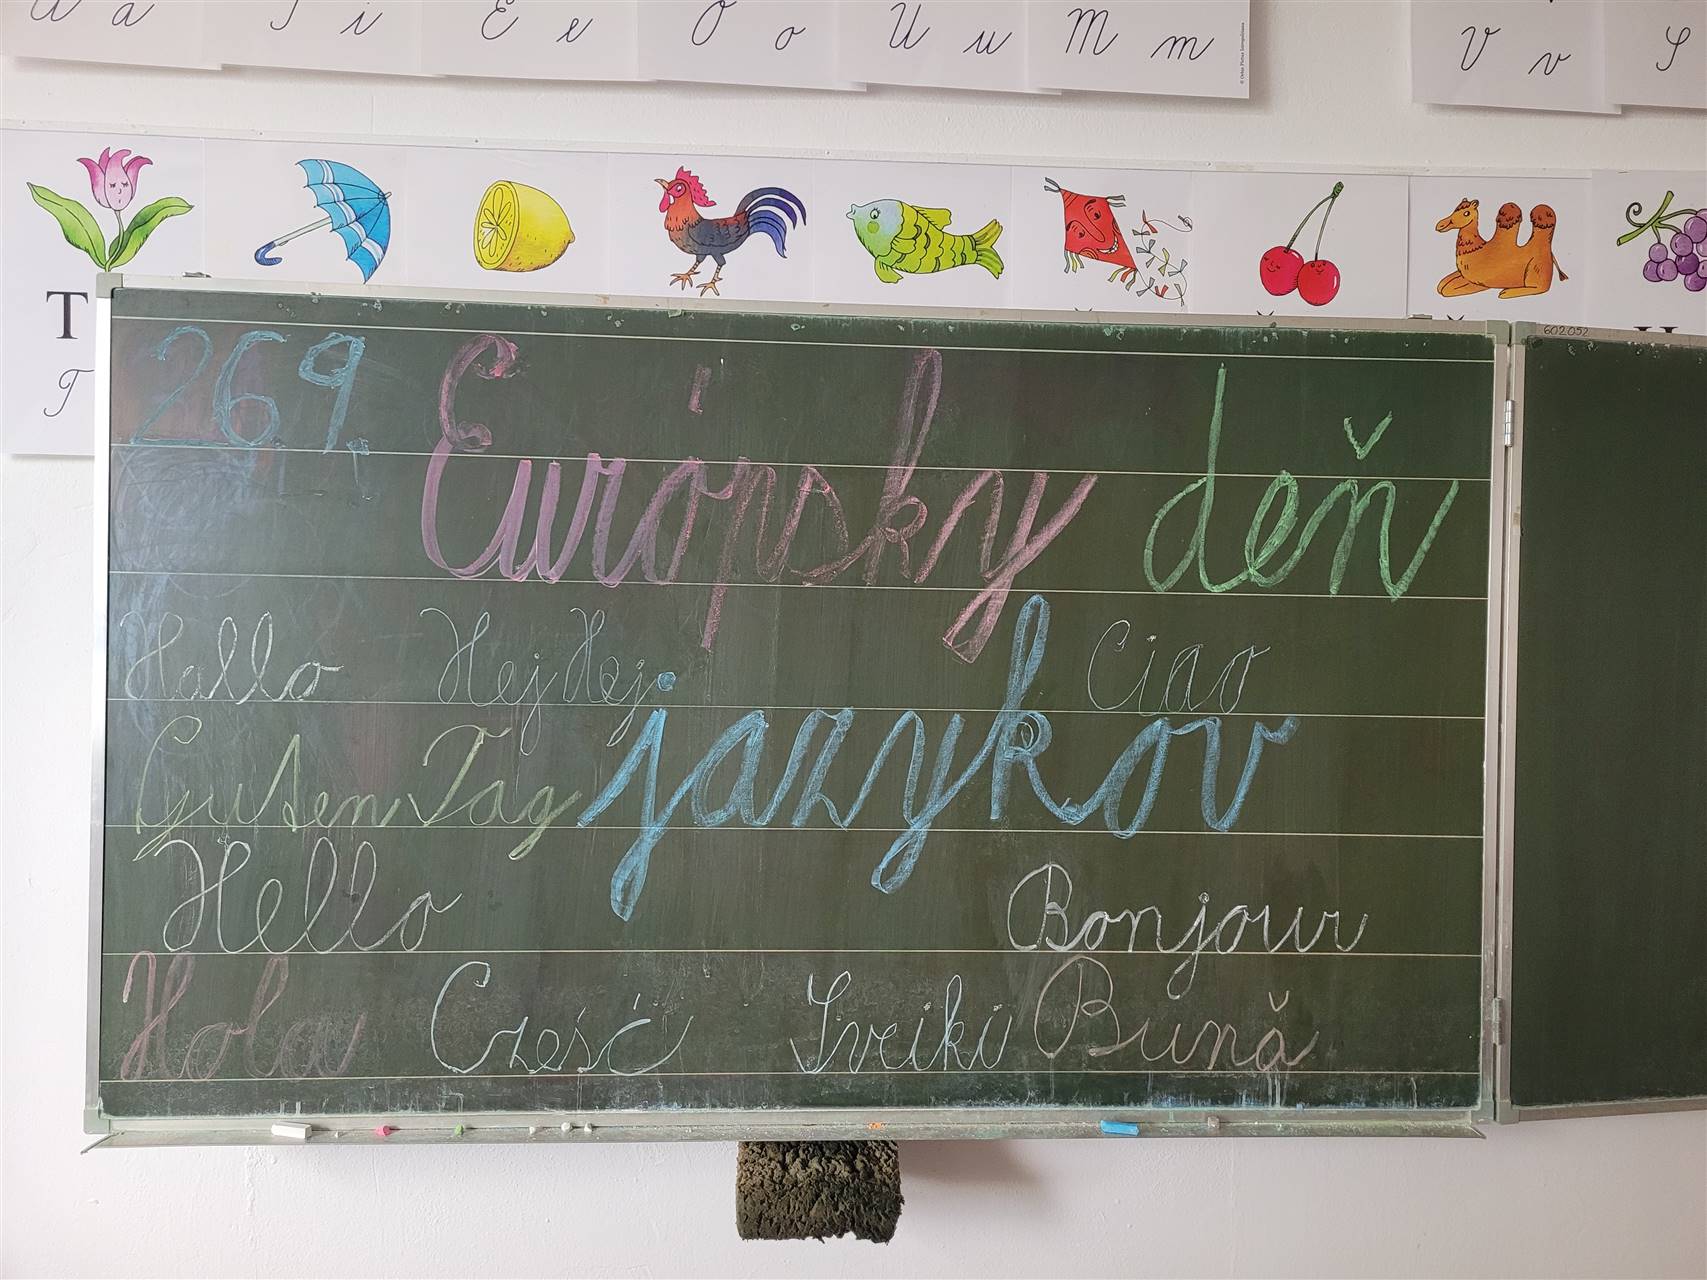 a a i E e O o U u M m V v S
© Orbis Pictus Istropolitana
T
T
602052
26.9. Európsky deň
Hallo Hej Hej Ciao
jazykov
Guten Tag
Hello Bonjour
Hola Cześć Sveiki Bună